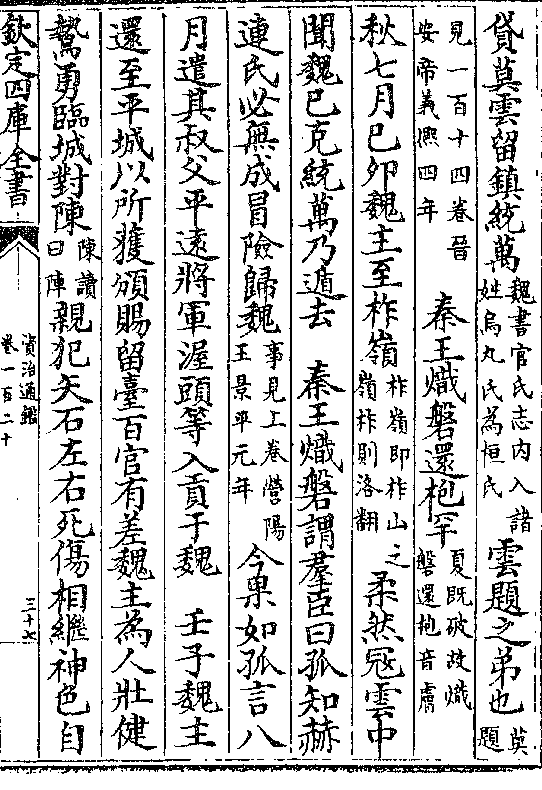 貸莫雲留鎮統萬魏書官氏志内入諸姓烏丸氏為桓氏雲題之弟也莫題
見一百十四卷晉安帝義熈四年秦王熾磐還枹罕夏既破故熾磐還枹音膚
秋七月已夘魏主至柞嶺柞嶺即柞山之嶺柞則洛翻柔然冦雲中
聞魏已克統萬乃遁去秦王熾磐謂羣臣曰孤知赫
連氏必無成冒險歸魏事見上卷營陽王景平元年今果如孤言八
月遣其叔父平逺將軍渥頭等入貢于魏壬子魏主
還至平城以所獲頒賜留臺百官有差魏主為人壯健
鷙勇臨城對陳陳讀曰陣親犯矢石左右死傷相繼神色自
欽定四庫全書
資治通鑑
卷一百二十
三十七